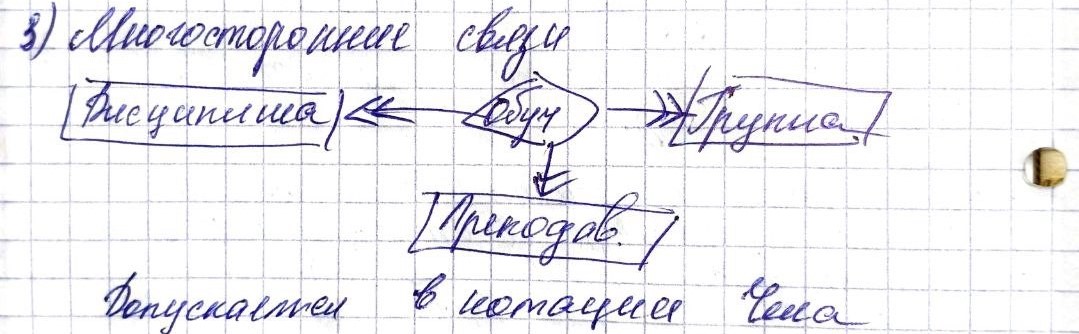 3) Многосторонние связи
Дисциплина Обуч Группа
Преподав.
Допускается в нотации Чена